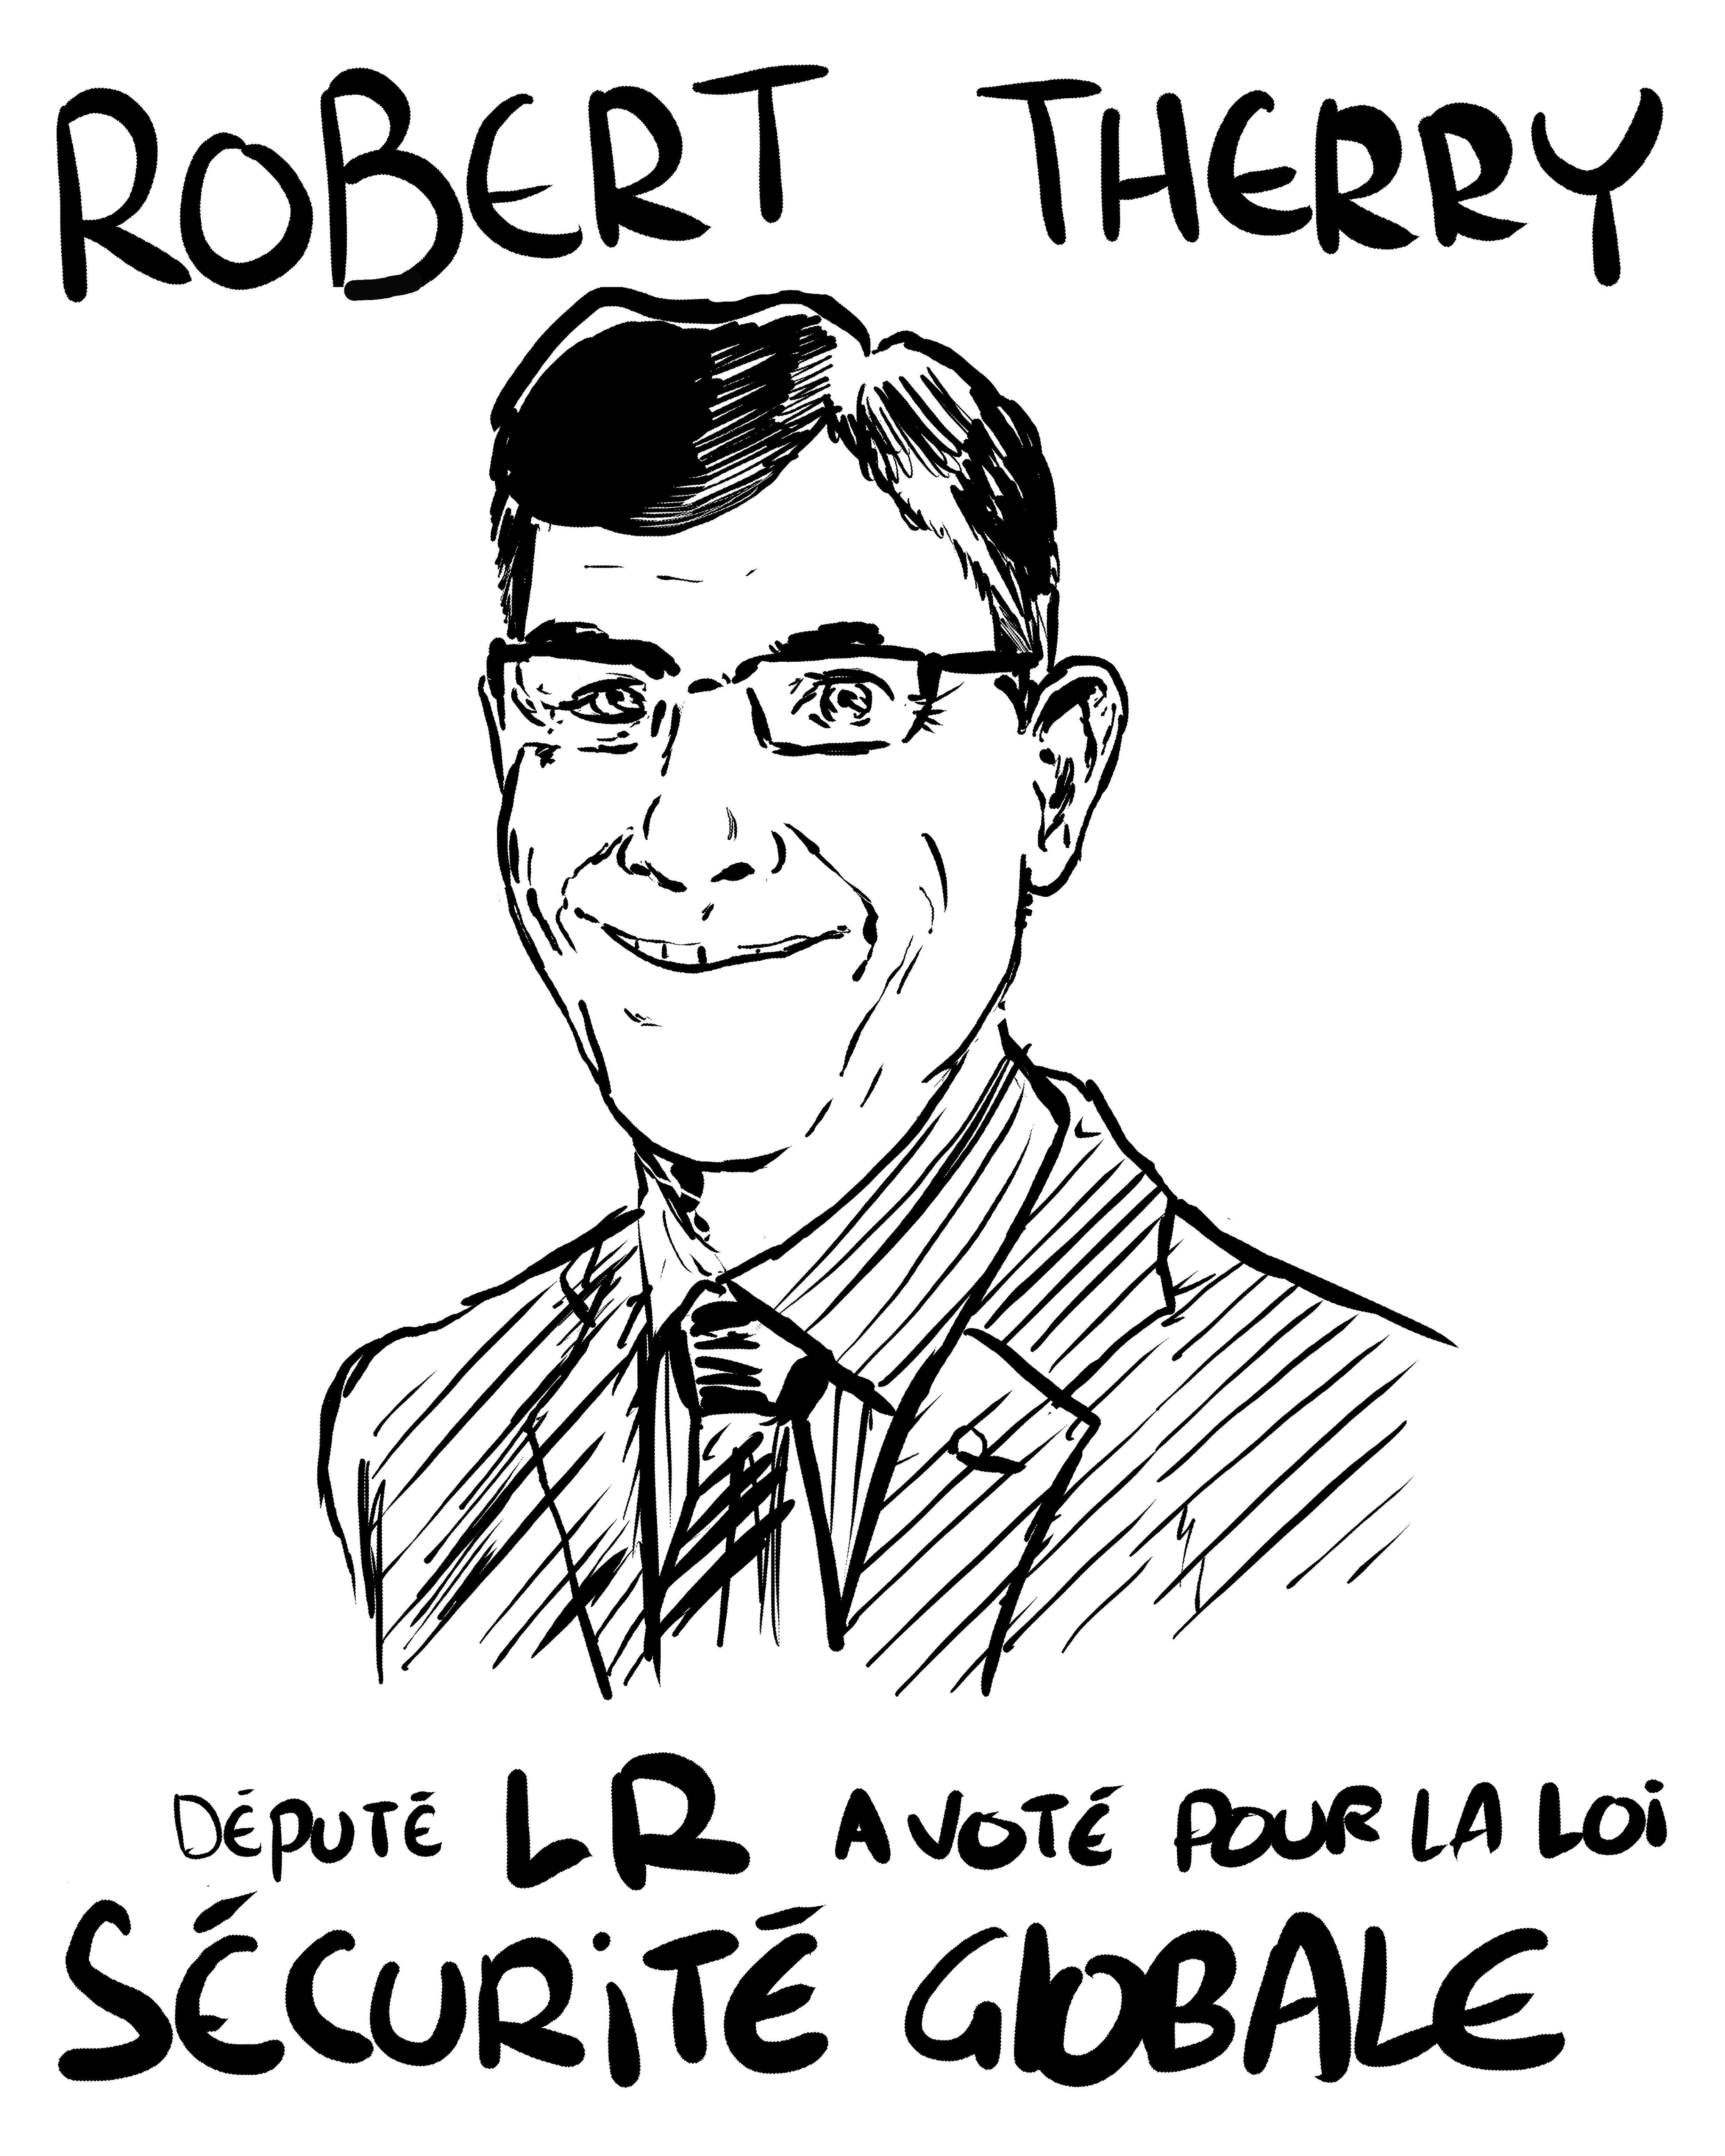 ROBERT THERRY
DÉPUTÉ LR A VOTÉ POUR LA LOi
SÉCURiTÉ GLOBALE